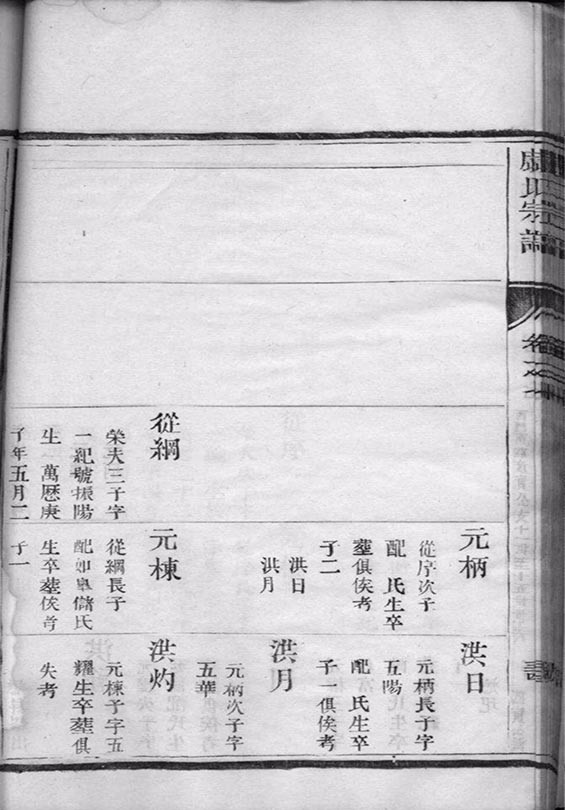 盧氏宗譜
卷之
元柄
從序次子
配　氏生卒
塟俱俟考
子二
洪日
洪月
洪日
元柄長子字
五陽
配　氏生卒
子一俱俟考
洪月
元柄次子字
五華
從綱
榮夫三子字
一紀號振陽
生　萬厯庚
子年五月二
元棟
從綱長子
配如臯儲氏
生卒塟俟考
子一
洪灼
元棟子字五
耀生卒塟俱
失考